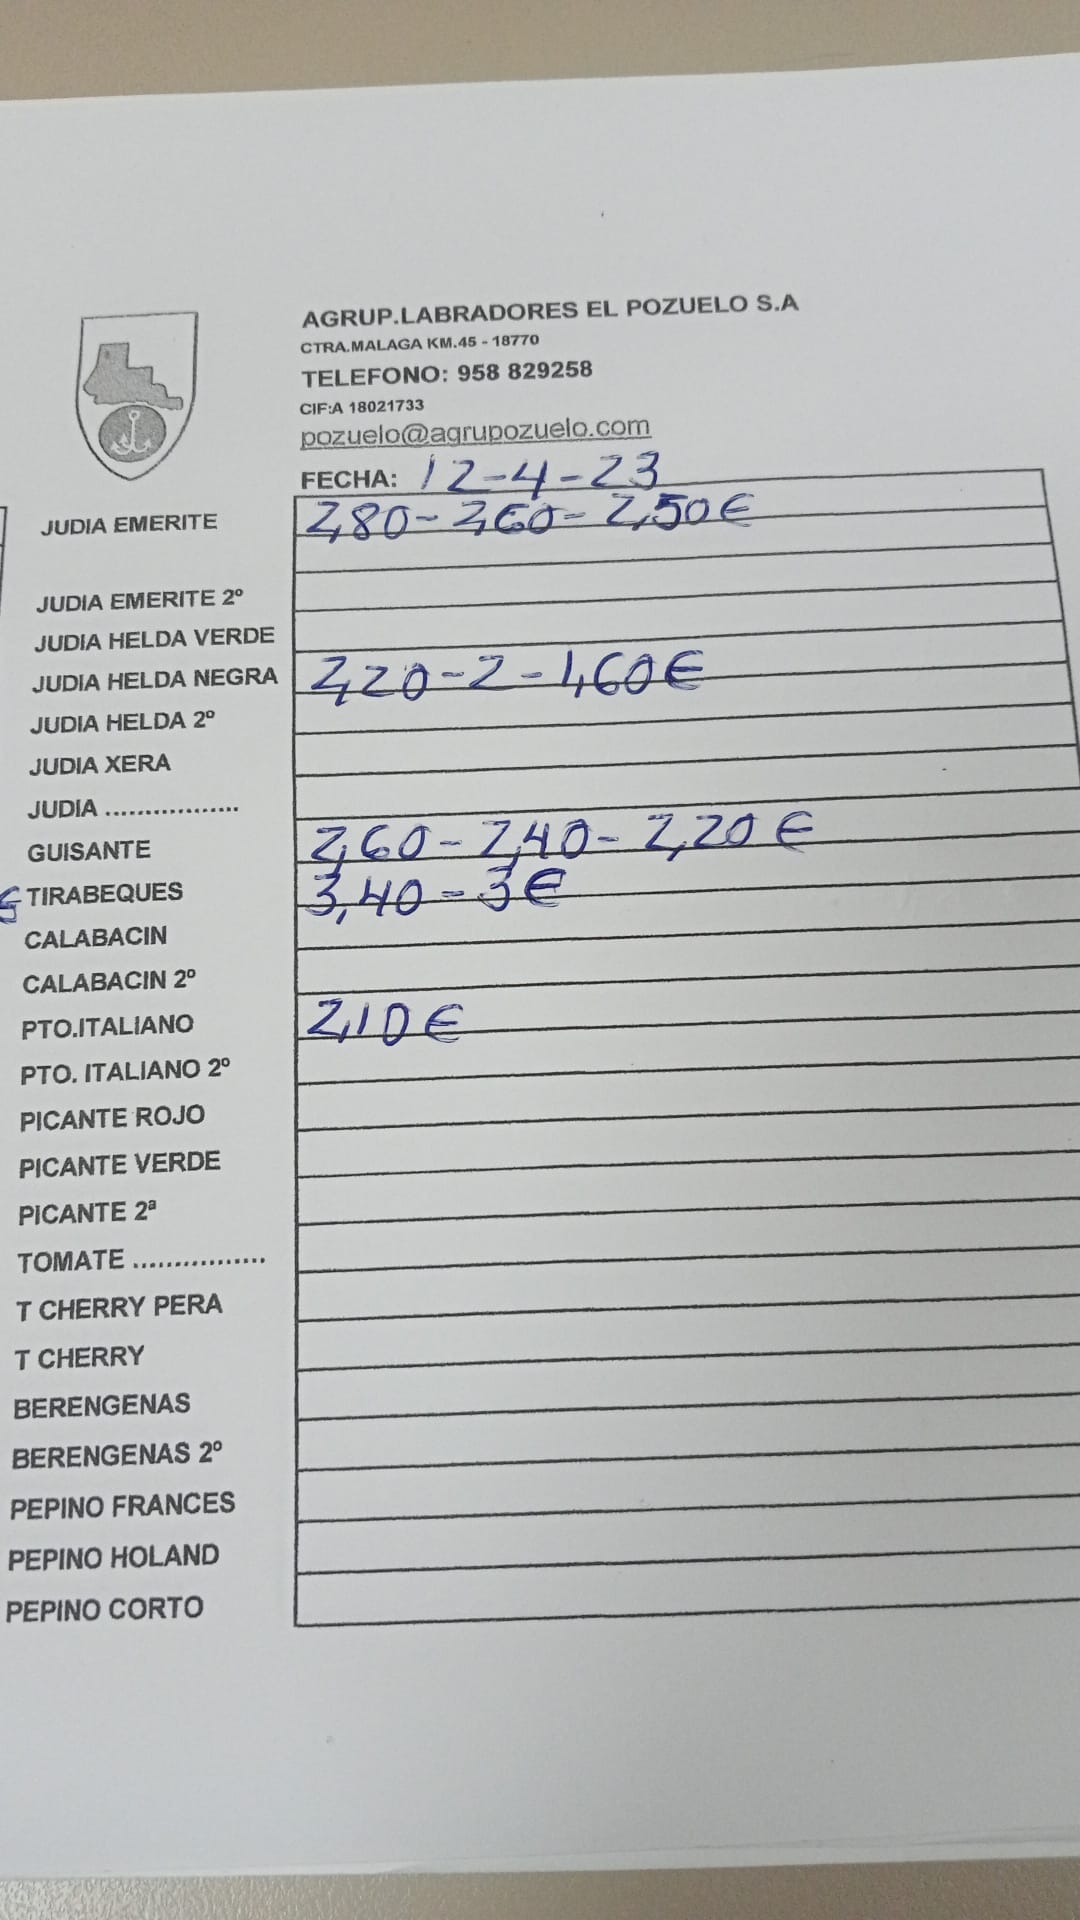 AGRUP.LABRADORES EL POZUELO S.A
CTRA.MALAGA KM.45 - 18770
TELEFONO: 958 829258
CIF:A 18021733
pozuelo@agrupozuelo.com
FECHA: 12-4-23
JUDIA EMERITE 2,80- 2,60- 2,50€
JUDIA EMERITE 2º
JUDIA HELDA VERDE
JUDIA HELDA NEGRA 2,20-2-1,60€
JUDIA HELDA 2º
JUDIA XERA
JUDIA .................
GUISANTE 2,60-2,40-2,20€
TIRABEQUES 3,40-3€
CALABACIN
CALABACIN 2º
PTO.ITALIANO 2,10€
PTO. ITALIANO 2º
PICANTE ROJO
PICANTE VERDE
PICANTE 2ª
TOMATE ................
T CHERRY PERA
T CHERRY
BERENGENAS
BERENGENAS 2º
PEPINO FRANCES
PEPINO HOLAND
PEPINO CORTO